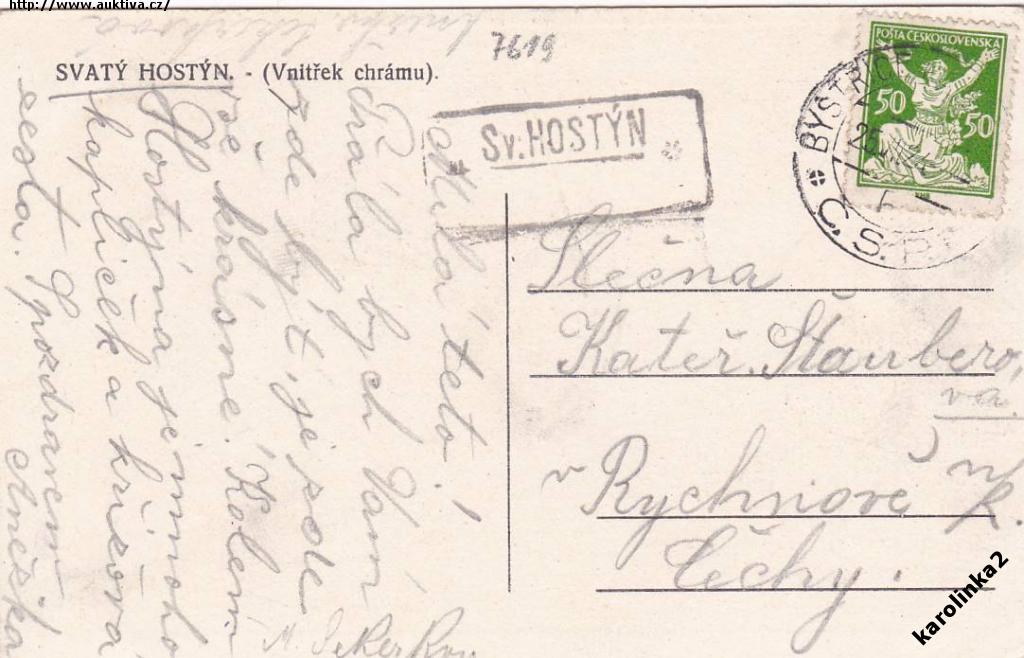 http://www.auktiva.cz/
7619
SVATÝ HOSTÝN. - (Vnitřek chrámu).
Sv. HOSTÝN
POŠTA ČESKOSLOVENSKA
50 50
BYSTŘICE
25.VII.
Č.S.R.
Milá teto!
Přála bych Vám
zde být, je zde
vše krásné. Kolem
Hostýna je mnoho
kapliček a křížová
cesta. S pozdravem
Anežka
Slečna
Kateř. Štaubero,
va.
v Rychnově n/K.
Čechy.
karolinka2